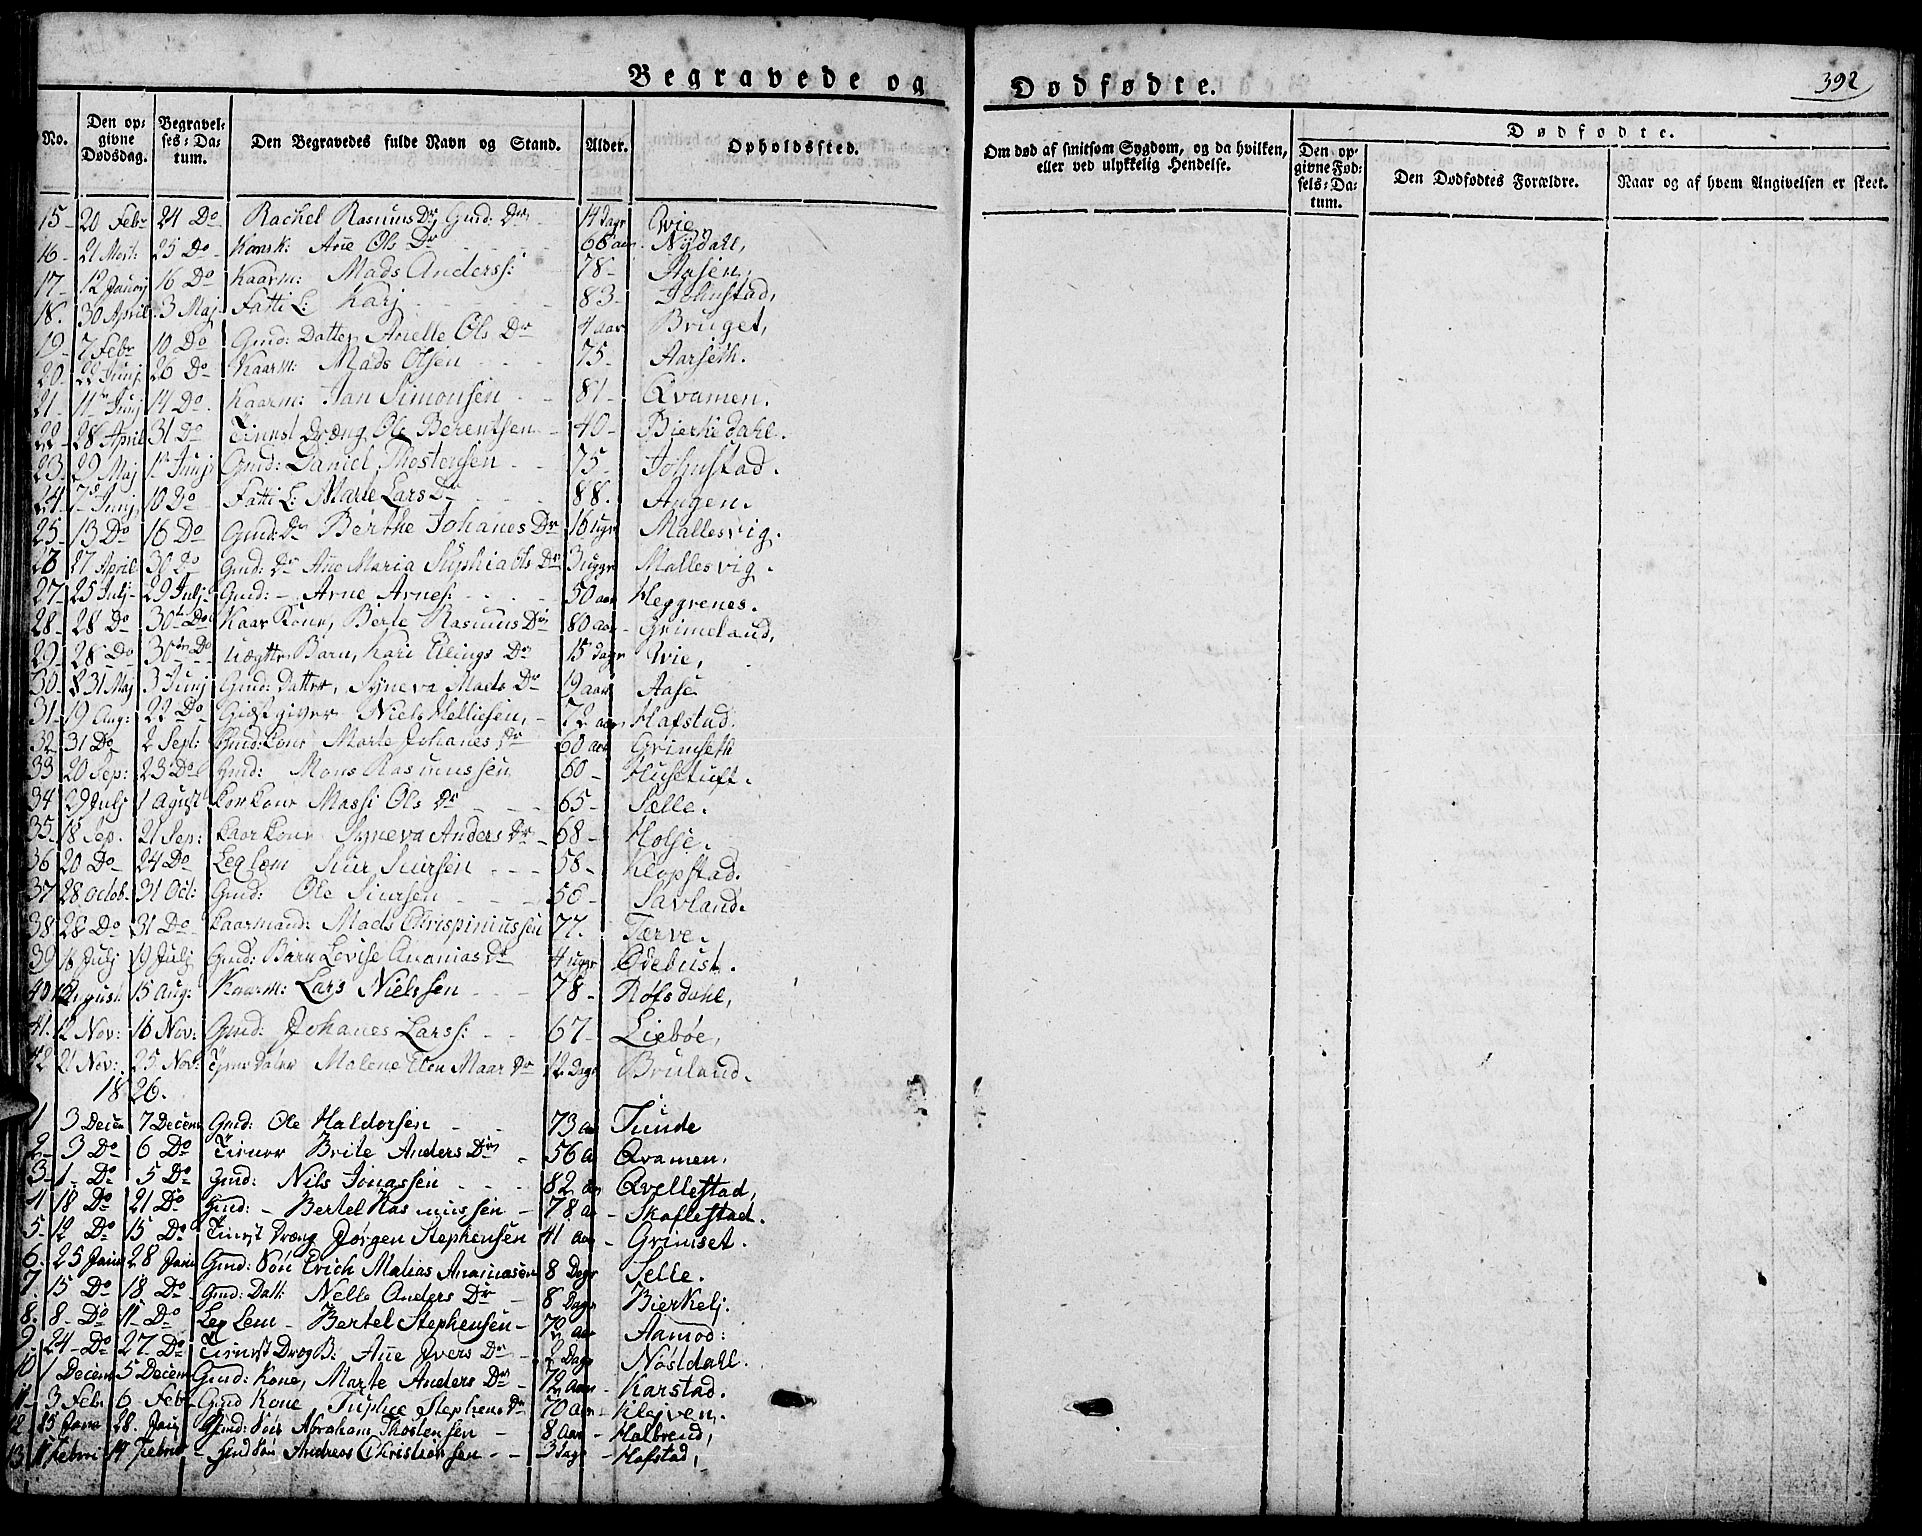 Begravede og Dødfødte.
392
No. Den op-givne Dødsdag. Begravel-ses-Da-tum. Den Begravedes fulde Navn og Stand. Alder. Opholdssted. Om død af smitsom Sygdom, og da hvilken, eller ved ulykkelig Hendelse. Dødfødte.
Den op-givne Fød-sels-Da-tum. Den Dødfødtes Forældre. Naar og af hvem Angivelsen er skeet.
15- 20 Febr 24 Do Rachel Rasmus Dr Gmd: Dr 14 dagr Wie
16- 21 Mort: 25 Do Konsk: Ane Ols Dr 66 aar Nydahl,
17- 12 Januj 16 Do Kaarm: Mads Anderss: 78- Aasen,
18. 30 April 3 Maj Fatti L: Karj 83- Johnstad,
19- 7 Febr 10 Do Gmd: Datter Anelle Ols Dr 4 aar Bruget,
20- 22 Junj 26 Do Kaarm: Mads Olsen 75- Aarseth.
21- 11te Junj 14 Do. Kaarm: Jan Simonsen 81- Qvamen.
22- 28 April 31 Do Tienst Dræng Ole Berentsen 40- Bierkedahl.
23- 29 Maj 1te Junj Gmd: Daniel Thostensen 75- Johnstad.
24- 7de Junj 10 Do Fatti L: Marte Lars Dr 88. Angen.
25- 13 Do 16 Do Gmd: Dr Berthe Johanes Dr 16 ugr Mallesvig.
26 27 April 30 Do Gmd: Dr Ane Maria Suphia Ols Dr 3 uggr Mallesvig.
27- 25 Julj 29 Julj Gmd: - Arne Arnes: 50 aar Heggrenes.
28- 28 Do 30te Do Kaar Kone, Berte Rasmus Dr 80 aar Grimeland,
29- 28 Do 30te Do uægtte Barn, Kari Elings Dr 15 dagr Wie,
30- 31 Maj 3 Junj Gmd: Datter, Syneva Mads Dr 19 aar Aase
31- 19 Aug: 22 Do Giæstgiver Niels Helliesen, 72 aar Hafstad.
32 31 Do 2 Sept: Gmd: Kone Marte Johanes Dr 60 aar Grimseth
33 20 Sep: 23 Do Gmd: Mons Rasmussen 60- Husetuft.
34 29 Julj 1 Agust Korkone Massi Ols Dr 65- Sælle.
35. 18 Sep. 21 Sep: Kaarkone Syneva Anders Dr 68- Holse.
36 20 Do 24 Do Leglem Siur Siursen 58- Klopstad.
37 28 octob. 31 Oct: Gmd: Ole Siursen 50- Savland.
38. 28 Do 31 Do Kaarmand: Mads Chrispiniussen 77. Tærve.
39 16 Julj 19 Julj Gmd: Barn Lovise Ananias Dr 4 uggr Ødebust.
40 August 15 Aug: Kaarm: Lars Nielssen 78- Røfsdahl,
41. 12 Nov: 16 Nov: Gmd: Johanes Larss: 67- Liebøe,
42 21 Nov: 25 Nov: Malene Elen Maar Dr 12 Dage Bruland.
1826.
1 3 Decem 7 Decem Gmd: Ole Haldorsen 73 aa Tunde
2- 3 Do 6 Do Brite Anders Dr 56 a Qvamen,
3- 1- Do 5 Do Gmd: Nils Jonassen 82 aa Qvellestad,
4 18 Do 21 Do Gmd: - Bertel Rasmussen 78 a Skaflestad.
5- 12 Do 15 Do Tienst Dræng Jørgen Stephensen 41 aar Grimset.
6. 25 Janu 28 Janu Gmd: Søn Erich Matias Ananiasen 8 Dagr Selle.
7. 15 Do 18 Do Gmd: Datt: Nelle Anders Dr 8 Dagr Bierkelj.
8. 8- Do 11- Do Leg Lem - Bertel Stephensen 70 aar Aamod:
9- 24- Do 27- Do Tienst Drog B: Ane Ivers Dr 2 Dage Nøstdahl.
10 1 Decem 5 Decem Gmd: Kone, Marte Anders Dr 72 aar Karstad.
11- 3 Feb. 6 Feb Gmd Kone Suphie Stephens Dr 70 aar Klojven.
12. 25 Janu 28. Janu Gmd: Søn Abraham Thostensen 8 aar Halbrend,
13 11 Febru 14 Febru Gmd søn Andreas Christiansen 3 dage Hafstad,